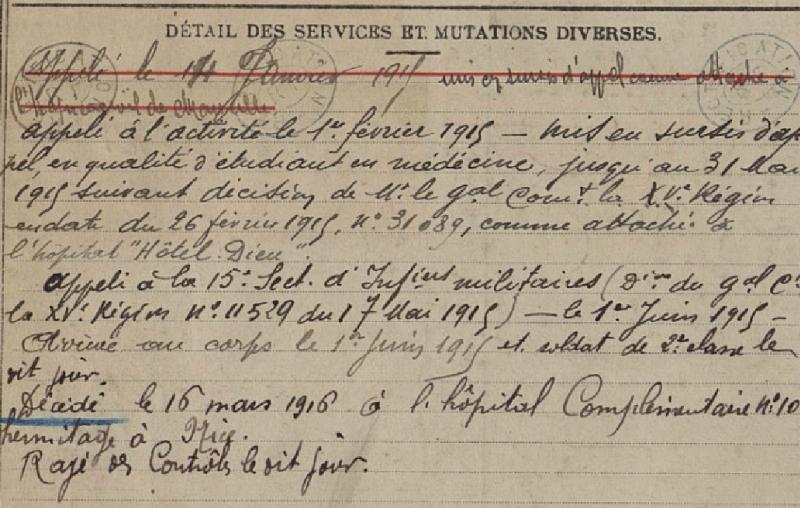 DÉTAIL DES SERVICES ET MUTATIONS DIVERSES.
Appelé le 14 Janvier 1915 mis en sursis d'appel comme attaché à
l'hôpital civil de Marseille
appelé à l'activité le 1er février 1915 — mis en sursis d'ap
pel, en qualité d'étudiant en médecine, jusqu'au 31 Mai
1915 suivant décision de Mr le gal Comt la XVe Région
en date du 26 février 1915, no 31089, comme attaché à
l'hôpital "Hôtel-Dieu".
appelé à la 15e Sect. d'Infiers militaires (Dion du gal Ct
la XVe Région No 11529 du 17 Mai 1915) — le 1er Juin 1915 -
Arrivé au corps le 1er Juin 1915 et soldat de 2e classe le
dit jour.
Décédé le 16 mars 1916 à l'hôpital Complémentaire No 10
hermitage à Nice.
Rayé des Contrôles le dit jour.